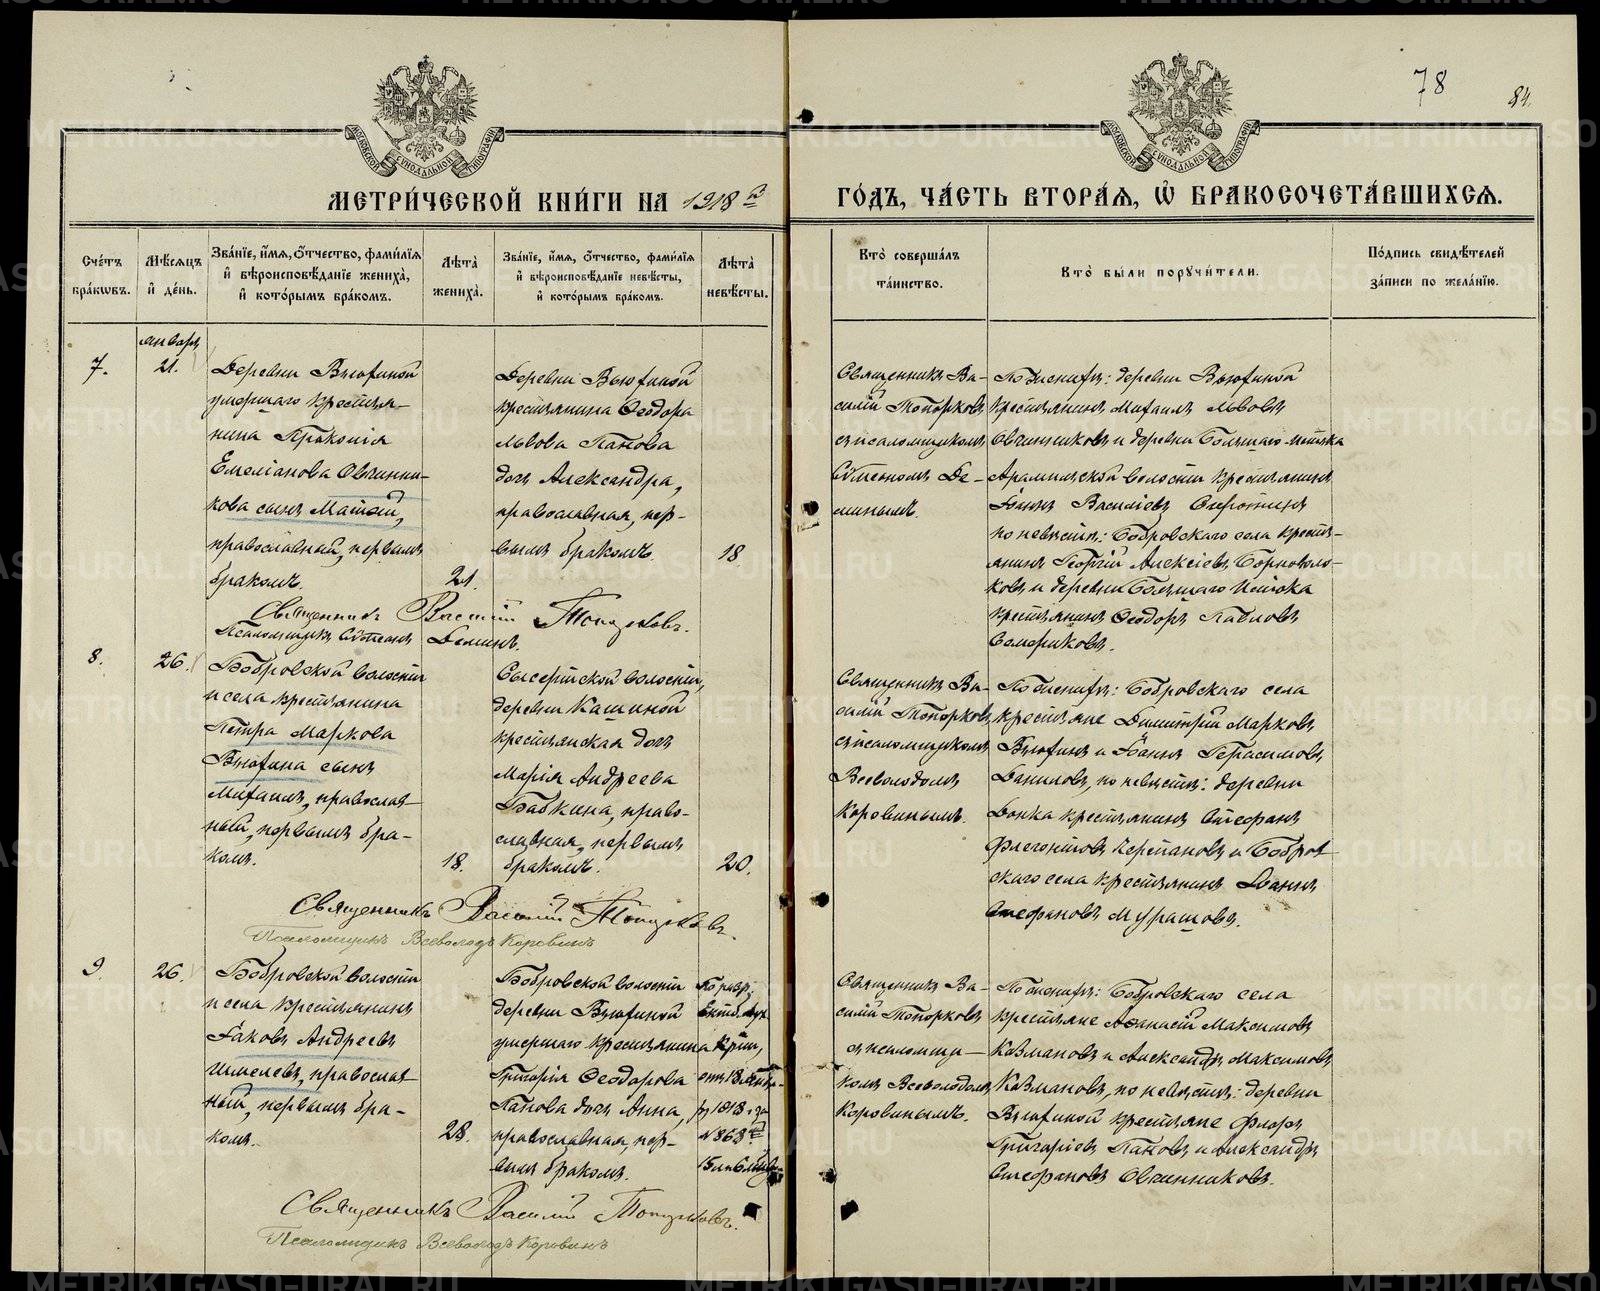 78
84.
МОСКОВСКОЙ СѴНОДАЛЬНОЙ ТИПОГРАФІИ
МОСКОВСКОЙ СѴНОДАЛЬНОЙ ТИПОГРАФІИ
МЕТРИ́ЧЕСКОЙ КНИ́ГИ НА 1918й
ГО́ДЪ, ЧА́СТЬ ВТОРА́Я, Ѽ БРАКОСОЧЕТА́ВШИХСѦ.
Сче́тъ
бра́кѡвъ.
Мѣ́сяцъ
и҆ де́нь.
Зва́нїе, и҆́мя, ѻ҆́тчество, фами́лїя
и҆ вѣроисповѣ́данїе жениха̀,
и҆ кото́рымъ бра́комъ.
Лѣ́та
жениха̀.
Зва́нїе, и҆́мя, ѻ҆́тчество, фами́лїя
и҆ вѣроисповѣ́данїе невѣ́сты,
и҆ кото́рымъ бра́комъ.
Лѣ́та
невѣ́сты.
Кто̀ соверша́лъ
та́инство.
Кто̀ бы́ли поручи́тели.
По́дпись свидѣ́телей
за́писи по жела́нїю.
январь
7.
21.
Деревни Вьюхиной
умершаго крестья-
нина Прокопія
Емеліанова Овчинни-
кова сынъ Матѳей,
православный, первымъ
бракомъ.
21.
Деревни Вьюхиной
крестьянина Ѳеодора
Львова Панова
дочь Александра,
православная, пер-
вымъ бракомъ.
18
Священникъ Ва-
силій Топорковъ
съ псаломщикомъ
Стефаномъ Де-
минымъ.
По женихѣ: деревни Вьюхиной
крестьянинъ Михаилъ Львовъ
Овчинниковъ и деревни Большаго-Истока
Арамильской волости крестьянинъ
Іоаннъ Василіевъ Сиротинъ
по невѣстѣ: Бобровскаго села крестья-
нинъ Георгій Алексіевъ Черноволо-
ковъ и деревни Большаго Истока
крестьянинъ Ѳеодоръ Павловъ
Священникъ Василій Топорковъ.
Псаломщикъ Стефанъ Деминъ.
8.
26.
Бобровской волости
и села крестьянина
Петра Маркова
Вьюхина сынъ
Михаилъ, православ-
ный, первымъ бра-
комъ.
18.
Сысертской волости,
деревни Кашиной
крестьянская дочь
Марія Андреева
Бабкина, право-
славная, первымъ
бракомъ.
20.
Священникъ Ва-
силій Топорковъ
съ псаломщикомъ
Всеволодомъ
Коровинымъ.
По женихѣ: Бобровскаго села
крестьяне Димитрій Марковъ
Вьюхинъ и Іоаннъ Герасимовъ
Даниловъ, по невѣстѣ: деревни
крестьянинъ Стефанъ
Флегонтовъ Черепановъ и Бобров-
скаго села крестьянинъ Іоаннъ
Стефановъ Мурашовъ.
Священникъ Василій Топорковъ.
Псаломщикъ Всеволодъ Коровинъ
9.
26.
Бобровской волости
и села крестьянинъ
Іаковъ Андреевъ
Шмелевъ, православ-
ный, первымъ бра-
комъ.
28.
Бобровской волости
деревни Вьюхиной
умершаго крестьянина
Григорія Ѳеодорова
Панова дочь Анна,
православная, пер-
вымъ бракомъ.
По разр.
1918 года
№ 863
Священникъ Ва-
силій Топорковъ
съ псаломщи-
комъ Всеволодомъ
Коровинымъ.
По женихѣ: Бобровскаго села
крестьяне Аѳанасій Максимовъ
Казмановъ и Александръ Максимовъ
Казмановъ, по невѣстѣ: деревни
Вьюхиной крестьяне Флоръ
Григоріевъ Пановъ и Александръ
Стефановъ Овчинниковъ.
Священникъ Василій Топорковъ.
Псаломщикъ Всеволодъ Коровинъ
METRIKI.GASO-URAL.RU